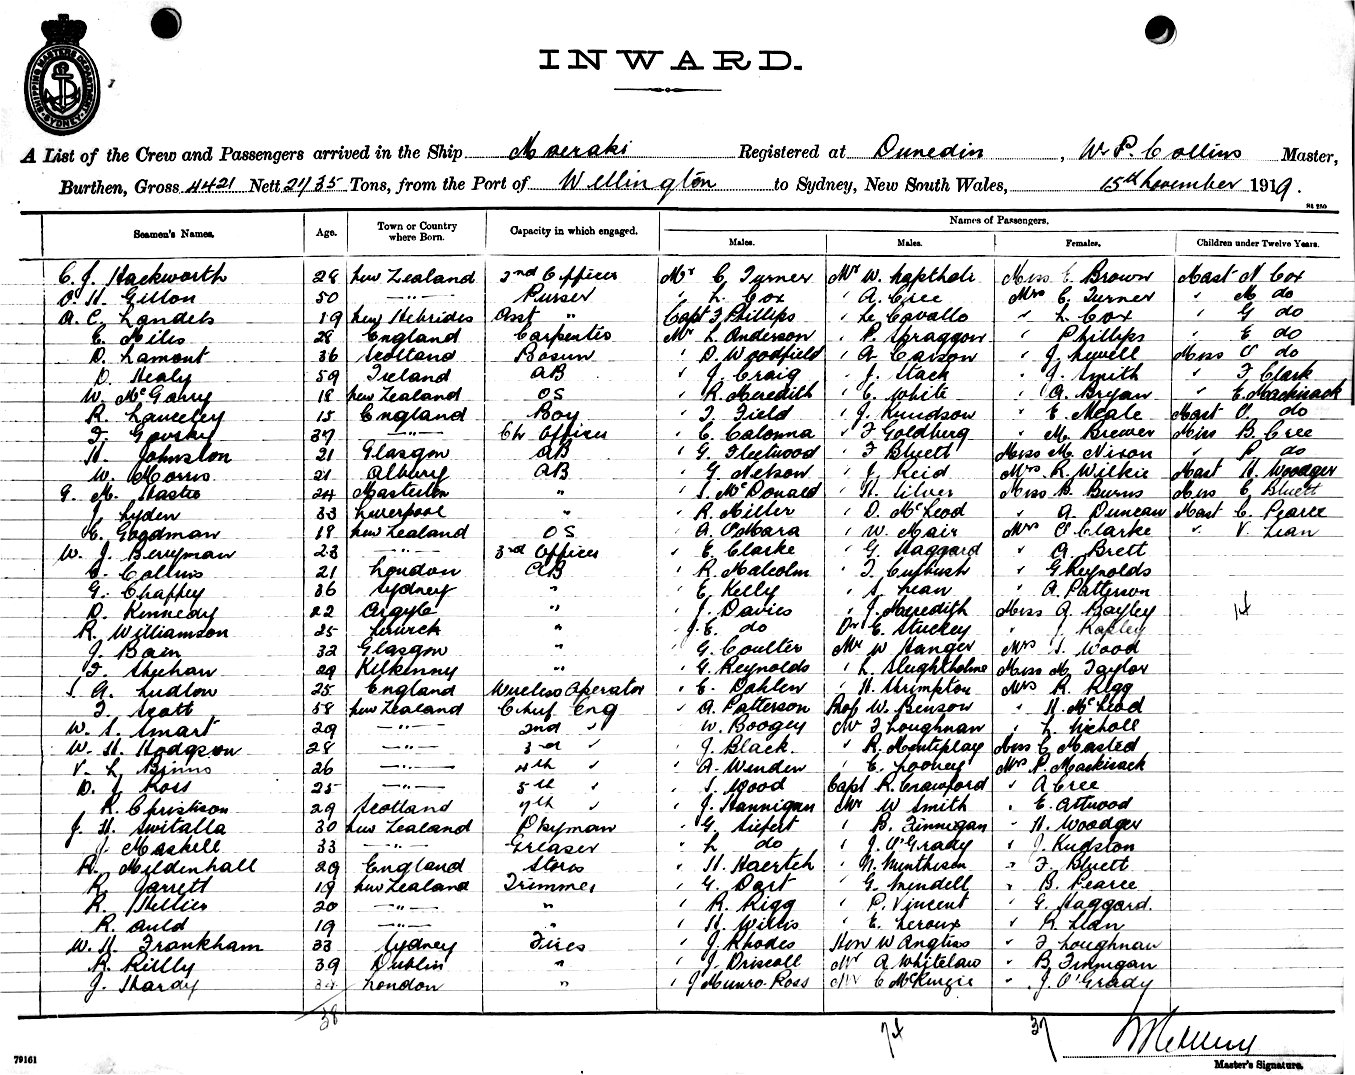 SHIPPING MASTERS DEPARTMENT SYDNEY
INWARD.
A List of the Crew and Passengers arrived in the Ship Moeraki Registered at Dunedin, W. P. Collins Master,
Burthen, Gross 4421 Nett 2435 Tons, from the Port of Wellington to Sydney, New South Wales, 15th November 1919.
Seamen's Names. Age. Town or Country where Born. Capacity in which engaged. Names of Passengers.
Males. Males. Females. Children under Twelve Years.
C. J. Hackworth 28 New Zealand 2nd Officer Mr C Turner Mr W. Miss E Brown Mast N Cox
O H. Gillon 50 " Purser " L. Cox " A. Cree Mrs C. Turner " M do
A. C. Landels 19 New Hebrides Asst " Capt F Phillips " L. Cavallo " L. Cox " G do
E. Miles 28 England Carpenter Mr L Anderson " P. Spraggon " Phillips " E do
D. Lamont 36 Scotland Bosun " D. Woodfield " A Carson " J. Newell Miss O do
D. Healy 59 Ireland AB " J. Craig " J. Stack " J. Smith " F Clark
W. McGarry 18 New Zealand OS " R. Meredith " C. White " A. Bryan " E. Mackisack
R. Lanceley 15 England Boy " T. Field " J. Knudson " E. Meale Mast O. do
F. 37 " Ch Officer " C. Calonna " F Goldberg " M. Brewer Miss B. Cree
H. Johnston 21 Glasgow AB " G. Fleetwood " F Bluett Miss M. Nixon " P do
W. Morris 21 Albury AB " G. Nelson " J. Reid Mrs R. Wilkie Mast H. Woodger
G. M. 24 Masterton " " S. McDonald " H. Silver Miss B. Burns Miss E Bluett
J. Lyden 33 Liverpool " " R. Miller " D. McLeod " A. Duncan Mast C. Pearce
C. Goodman 18 New Zealand OS " A. O'Mara " W. Mair Mrs O Clarke " V. Lean
W. J. Berryman 23 " 3rd Officer " E. Clarke " G. Haggard " A. Brett
C. Collins 21 London AB " R. Malcolm " T. Cutbush " G Reynolds
G. Chaffey 36 Sydney " " E Kelly " S. Lean " A. Patterson
D. Kennedy 22 Argyle " " J. Davies " J. Meredith Miss A. Bayley 14
R. Williamson 25 Lerwick " " J. E. do Dr E. Stuckey " J. Rapley
J. Bain 32 Glasgow " " G. Coulter Mr W Hanger Mrs S. Wood
F. Sheehan 29 Kilkenny " " G. Reynolds " L. Sleightholme Miss M. Taylor
S. A. Ludlow 25 England Wireless Operator " E. Dahlen " H. Shrimpton Mrs R. Rigg
F. Scott 58 New Zealand Chief Eng " A. Patterson Prof W. Benson " H. McLeod
W. S. Smart 29 " 2nd " " W. Boogey Mr F Loughnan " L. Nicholl
W. H. Hodgson 28 " 3rd " " J. Black " R. Monteplay Miss C Masted
V. L. Binns 26 " 4th " " A. Winden " E. Looney Mrs P. Mackisack
D. J. Ross 25 " 5th " " S. Wood Capt R. Crawford " A Cree
R. Christison 29 Scotland 7th " " J. Hannigan Mr W Smith " E. Attwood
J. H. Switalla 30 New Zealand Dkyman " G. Siefert " B. Finnigan " H. Woodger
J. Maskell 33 " Greaser " L do " J. O'Grady " J. Kudston
R. Mildenhall 29 England Stores " H. Haertel " N. " F. Bluett
R. Garrett 19 New Zealand Trimmer " G. Dart " G. Mendell " B. Pearce
R. Hellier 20 " " " R. Rigg " P. Vincent " G. Haggard.
R. Auld 19 " " " H. Willis " E. Leroux " R. Lean
W. H. Frankham 33 Sydney Fires " J. Rhodes Hon W Angliss " F Loughnan
R. Reilly 39 Dublin " " J. Driscoll Mr A Whitelaw " B. Finnigan
J. Hardy 34 London " " J Munro-Ross Mr C McKenzie " J. O'Grady
38 74 37
Master's Signature.
79161